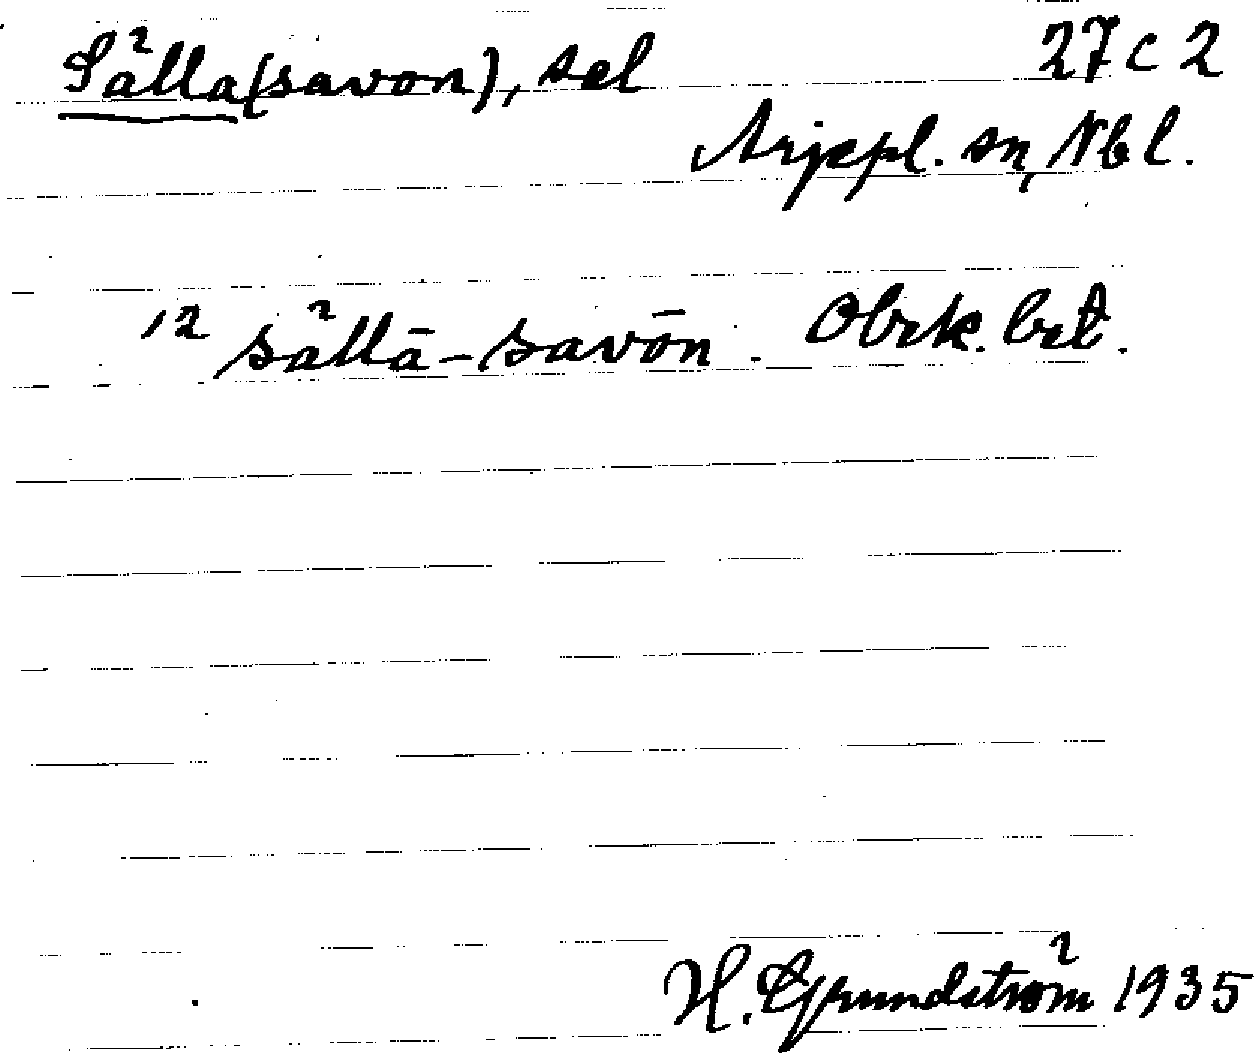 Sälla(savon), sel 27 c 2
Arjepl. sn, Nbl.
12 sällā-savōn. Obek. bet.
H. Grundström 1935